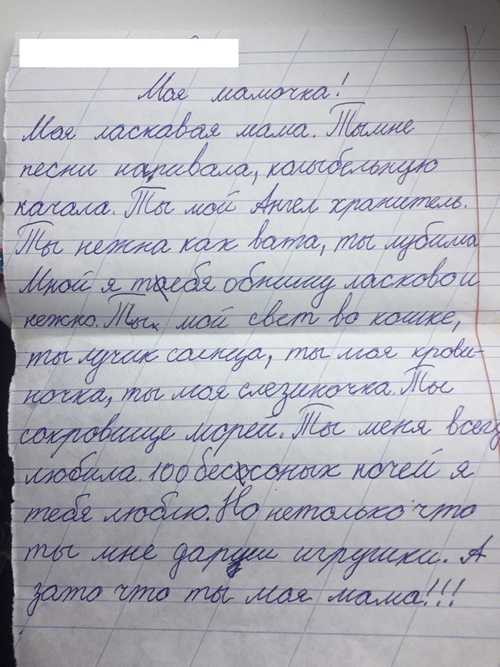 Моя мамочка!
Моя ласкавая мама. Тымне
песни напривала, колыбельную
качала. Ты мой Ангел хранитель.
Ты нежна как вата, ты лубима
Мной я тебя обнишу ласковои
нежно. Ты мой свет во кошке,
ты лучик солнца, ты моя крови-
ночка, ты моя слезиночка. Ты
сокровище морей. Ты меня всегда
любила. 100 бессоных ночей я
тебя люблю. Но нетолько что
ты мне дариш игрушки. А
зато что ты моя мама!!!